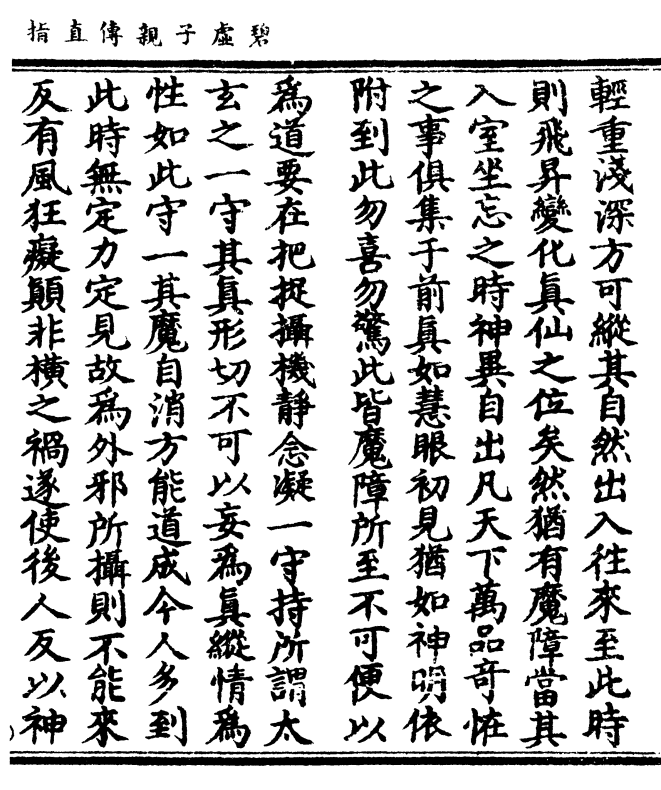 碧虛子親傳直指
輕重淺深方可縱其自然出入往來至此時
則飛昇變化真仙之位矣然猶有魔障當其
入室坐忘之時神異自出凡天下萬品奇恠
之事俱集于前真如慧眼初見猶如神明依
附到此勿喜勿驚此皆魔障所至不可便以
為道要在把捉攝機靜念凝一守持所謂太
玄之一守其真形切不可以妄為真縱情為
性如此守一其魔自消方能道成今人多到
此時無定力定見故為外邪所攝則不能來
反有風狂癡顛非橫之禍遂使後人反以神